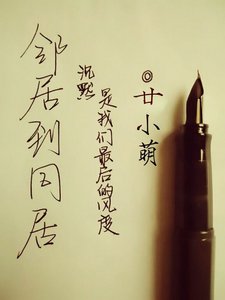 邻居到同居
沉默
是我们最后的风度
◎廿小萌